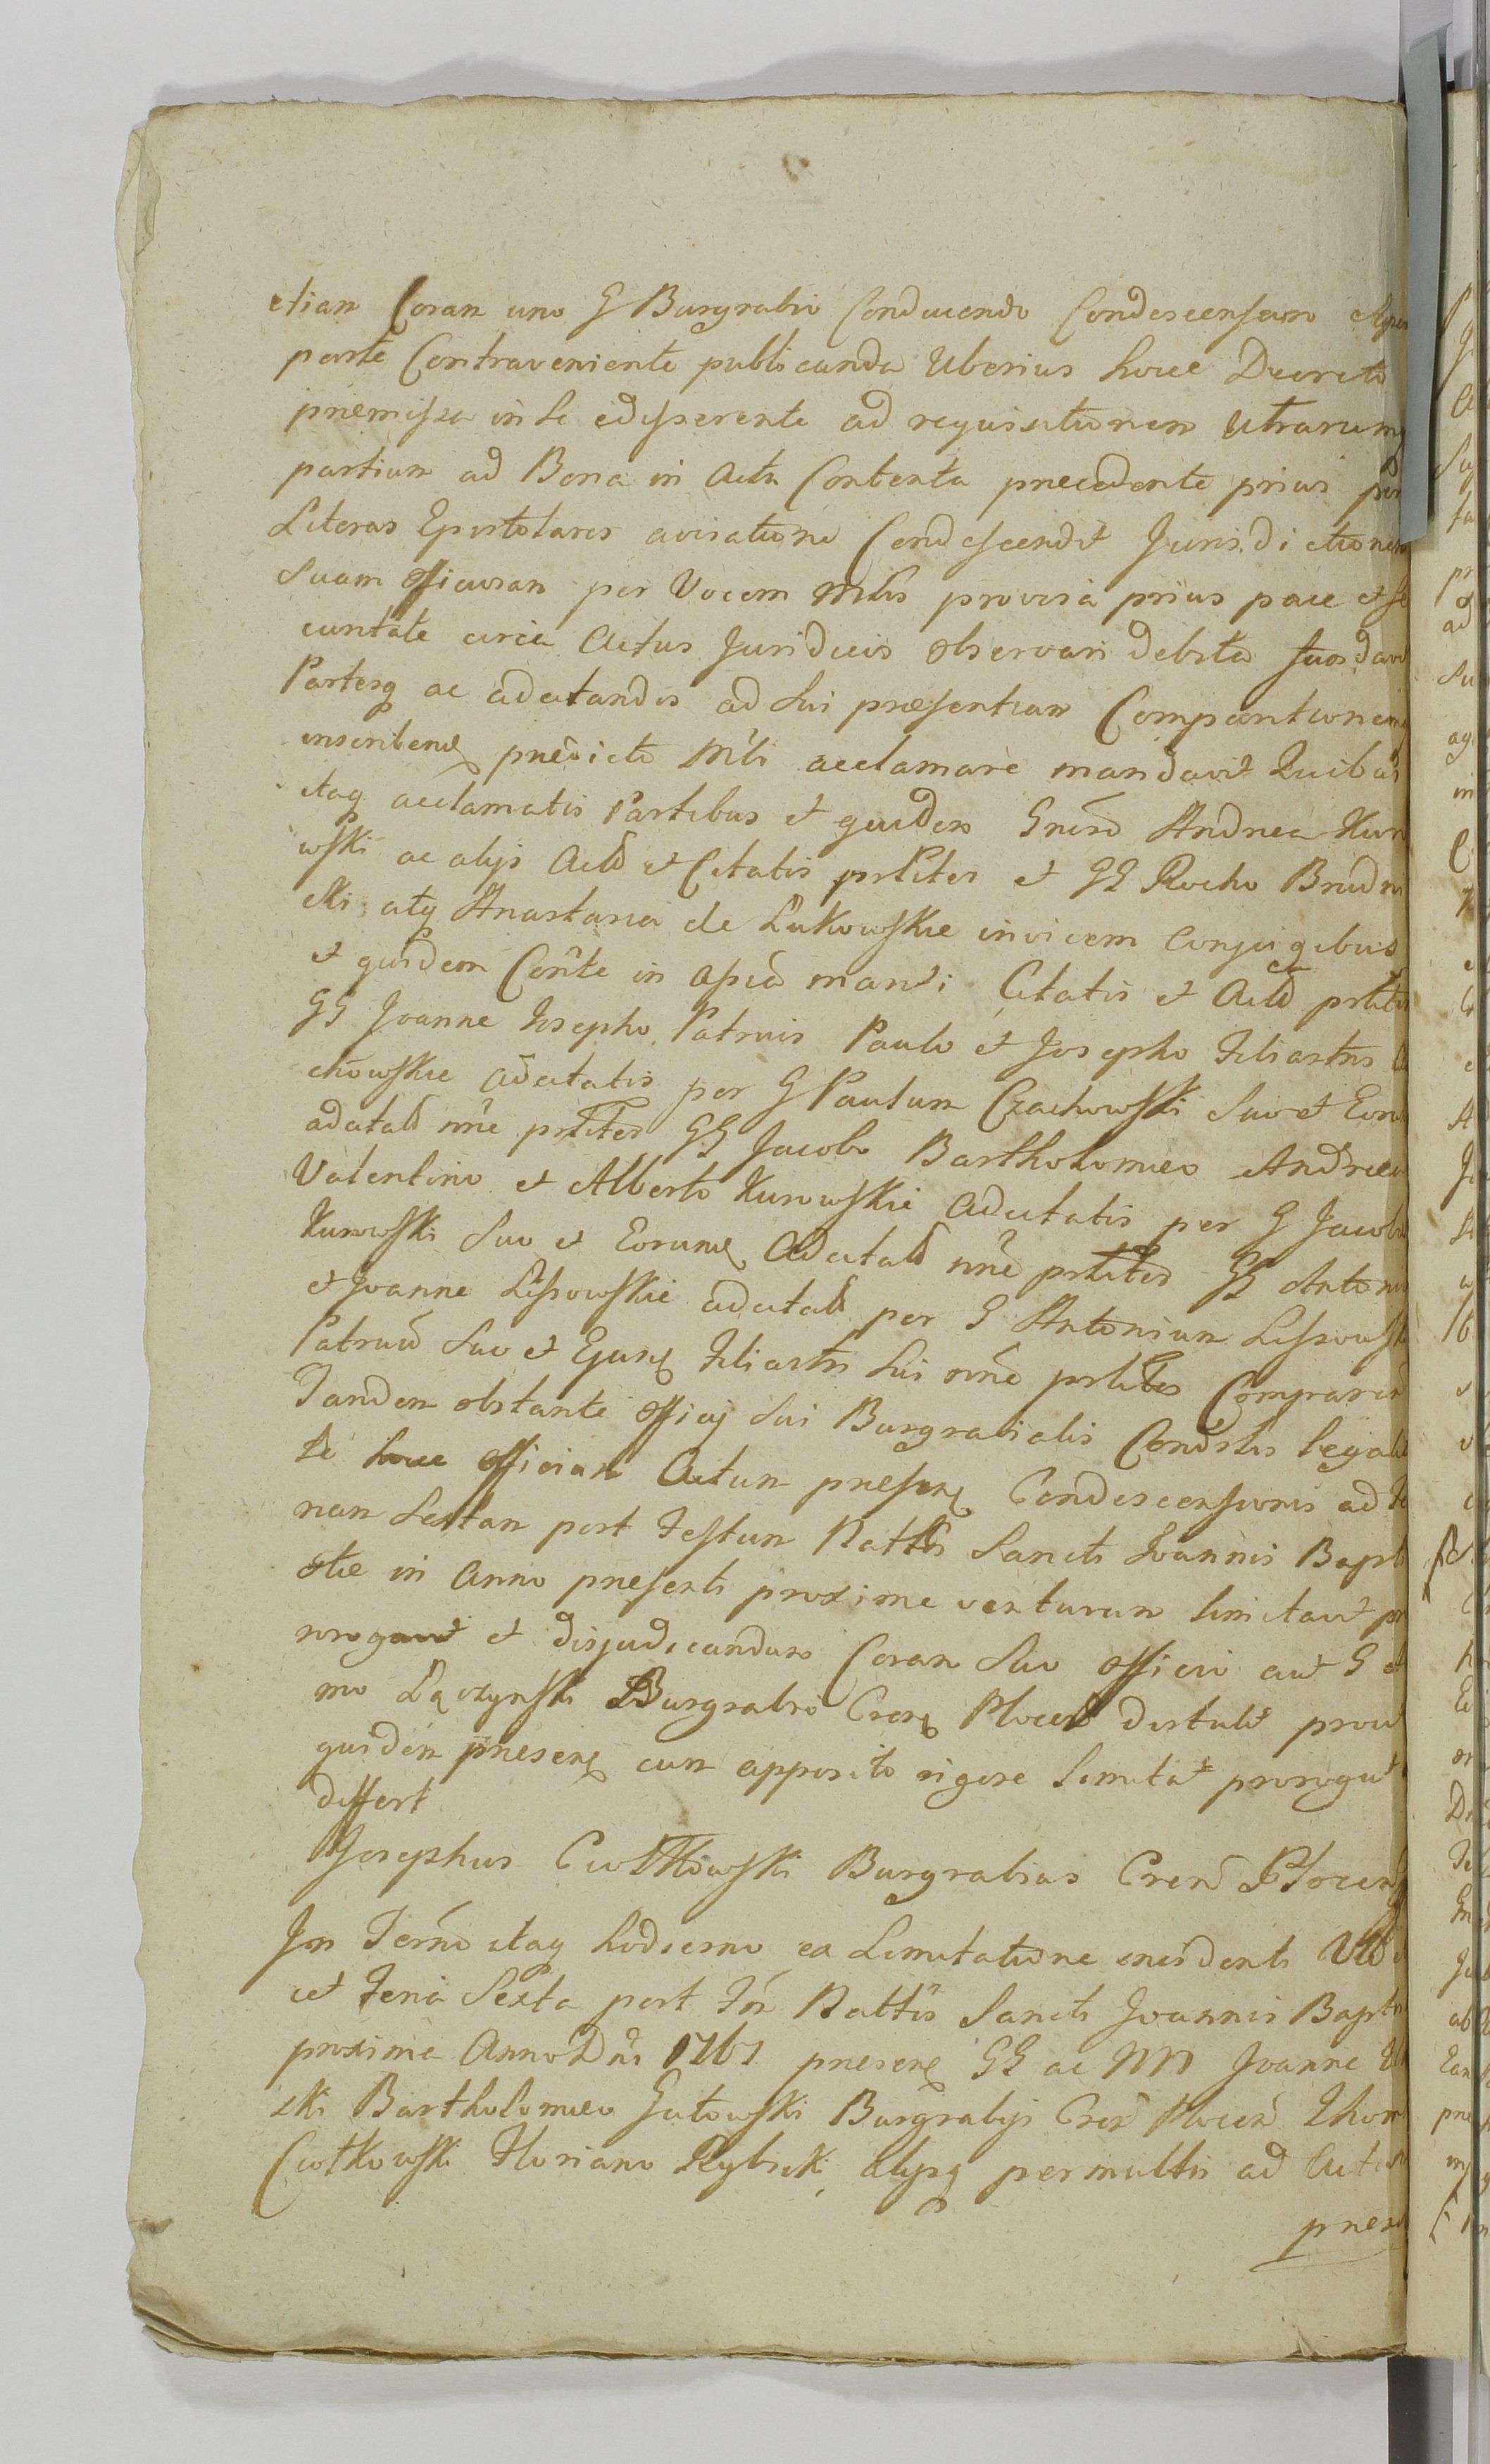 etiam Coram uno G Burgrabio Conducendo Condescensum
parte Contraveniente publicanda Uberius hocce Decreto
praemissa in se edisserente ad requisitionem Utrarumq
partium ad Bona in Actu Contenta praecedente prius per
Literas Epistolares avisatione Condescendit Jurisdictionem
Suam officiosam per Vocem Mlis provisa prius pace et se
curitate circa Actus Juridicos observari debita fundavit
Partesq ac adcitandos ad Sui praesentiam
inscriben praedicto Mli acclamare mandavit Quibus
itaq acclamatis Partibus et quidem Gneso Andrea Kuro
wski ac alijs Actb et Citatis prliter et GG Rocho Brudni
cki atq Anastasia de Łukowskie invicem Conjugibus
et quidem Conte in assia mariti Citatis et Actb prliter
GG Joanne Josepho Patruis Paulo et Josepho Filiastris C
chowskie adcitatis per G Paulum Czachowski Suo et Eor
adcitatb nne prliter GG Jacobo Bartholomeo Andrea
Valentino et Alberto Kurowskie Adcitatis per G Jacobu
Kurowski Suo et Eorum Adcitatb nne prliter GG Antonio
et Joanne Lissowskie adcitatb per G Antonium Lissowski
Patruu Suo et Ejus Filiastri Sui nne prliter Comparen
Tandem obstante officij Sui Burgrabialis Condslis legali
te hocce officiam Actum praesen Condescensionis ad Fe
riam Sextam post Festum Nattis Sancti Joannis Bapti
stae in Anno praesenti proxime venturum limitavit pro
rogavit et disjudicandum Coram Suo officio aut G
mo Łączynski Burgrabio Cren Plocen distulit prout
quidem praesen cum apposito rigore limitat prorogat
differt
Josephus Ciołkowski Burgrabius Cren Plocen
In Termo itaq hodierno ex Limitatione incidenti Vtb
cet Feria Sexta post Fm Nattis Sancti Joannis Bapti
proxima Anno Dni 1767 praesen GG ac NN Joanne
ski Bartholomeo Gutowski Burgrabijs Cren Plocen Thom
Ciołkowski Floriano Rybicki alijsq permultis ad Actum
praesen